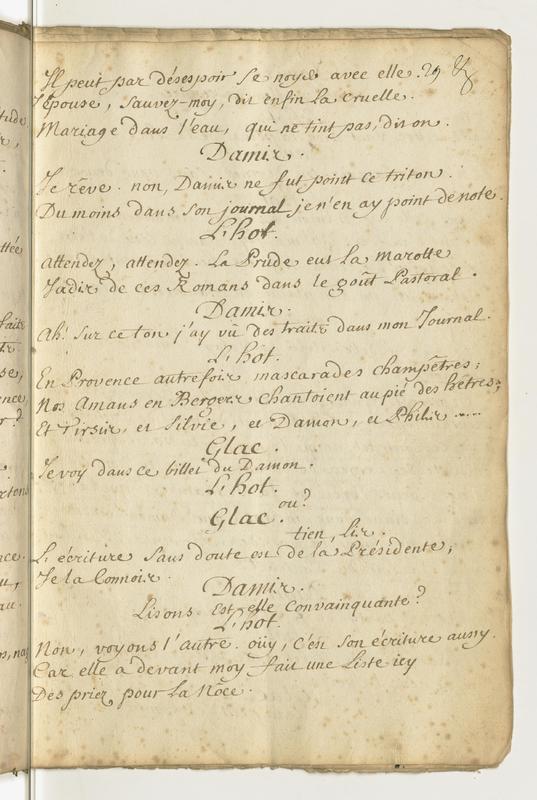 Il peut par désespoir se noyer avec elle. 29
J'épouse, sauvez-moy, dit enfin la cruelle.
Mariage dans l'eau, qui ne tint pas, dit on.
Damis.
Je rêve. non, Damis ne fut point ce triton.
Du moins dans son journal je n'en ay point de note.
L'hot.
Attendez, attendez. La Prude eut la marotte
Jadis de ces Romans dans le goût Pastoral.
Damis.
Ah! sur ce ton j'ay vû des traits dans mon Journal.
L'hot.
En Provence autrefois mascarades champêtres;
Nos Amans en Bergers chantoient au pié des hêtres;
Et Tirsis, et Silvie, et Damon, et Philis ....
Glac.
Je voy dans ce billet du Damon.
L'hot.
ou?
Glac.
tien, lis.
L'écriture sans doute est de la Présidente,
Je la Connois.
Damis.
Lisons. Est elle Convainquante?
L'hot.
Non, voyons l'autre. oüy, c'est son écriture aussy.
Car elle a devant moy fait une Liste icy
Des priez pour la Nôce.